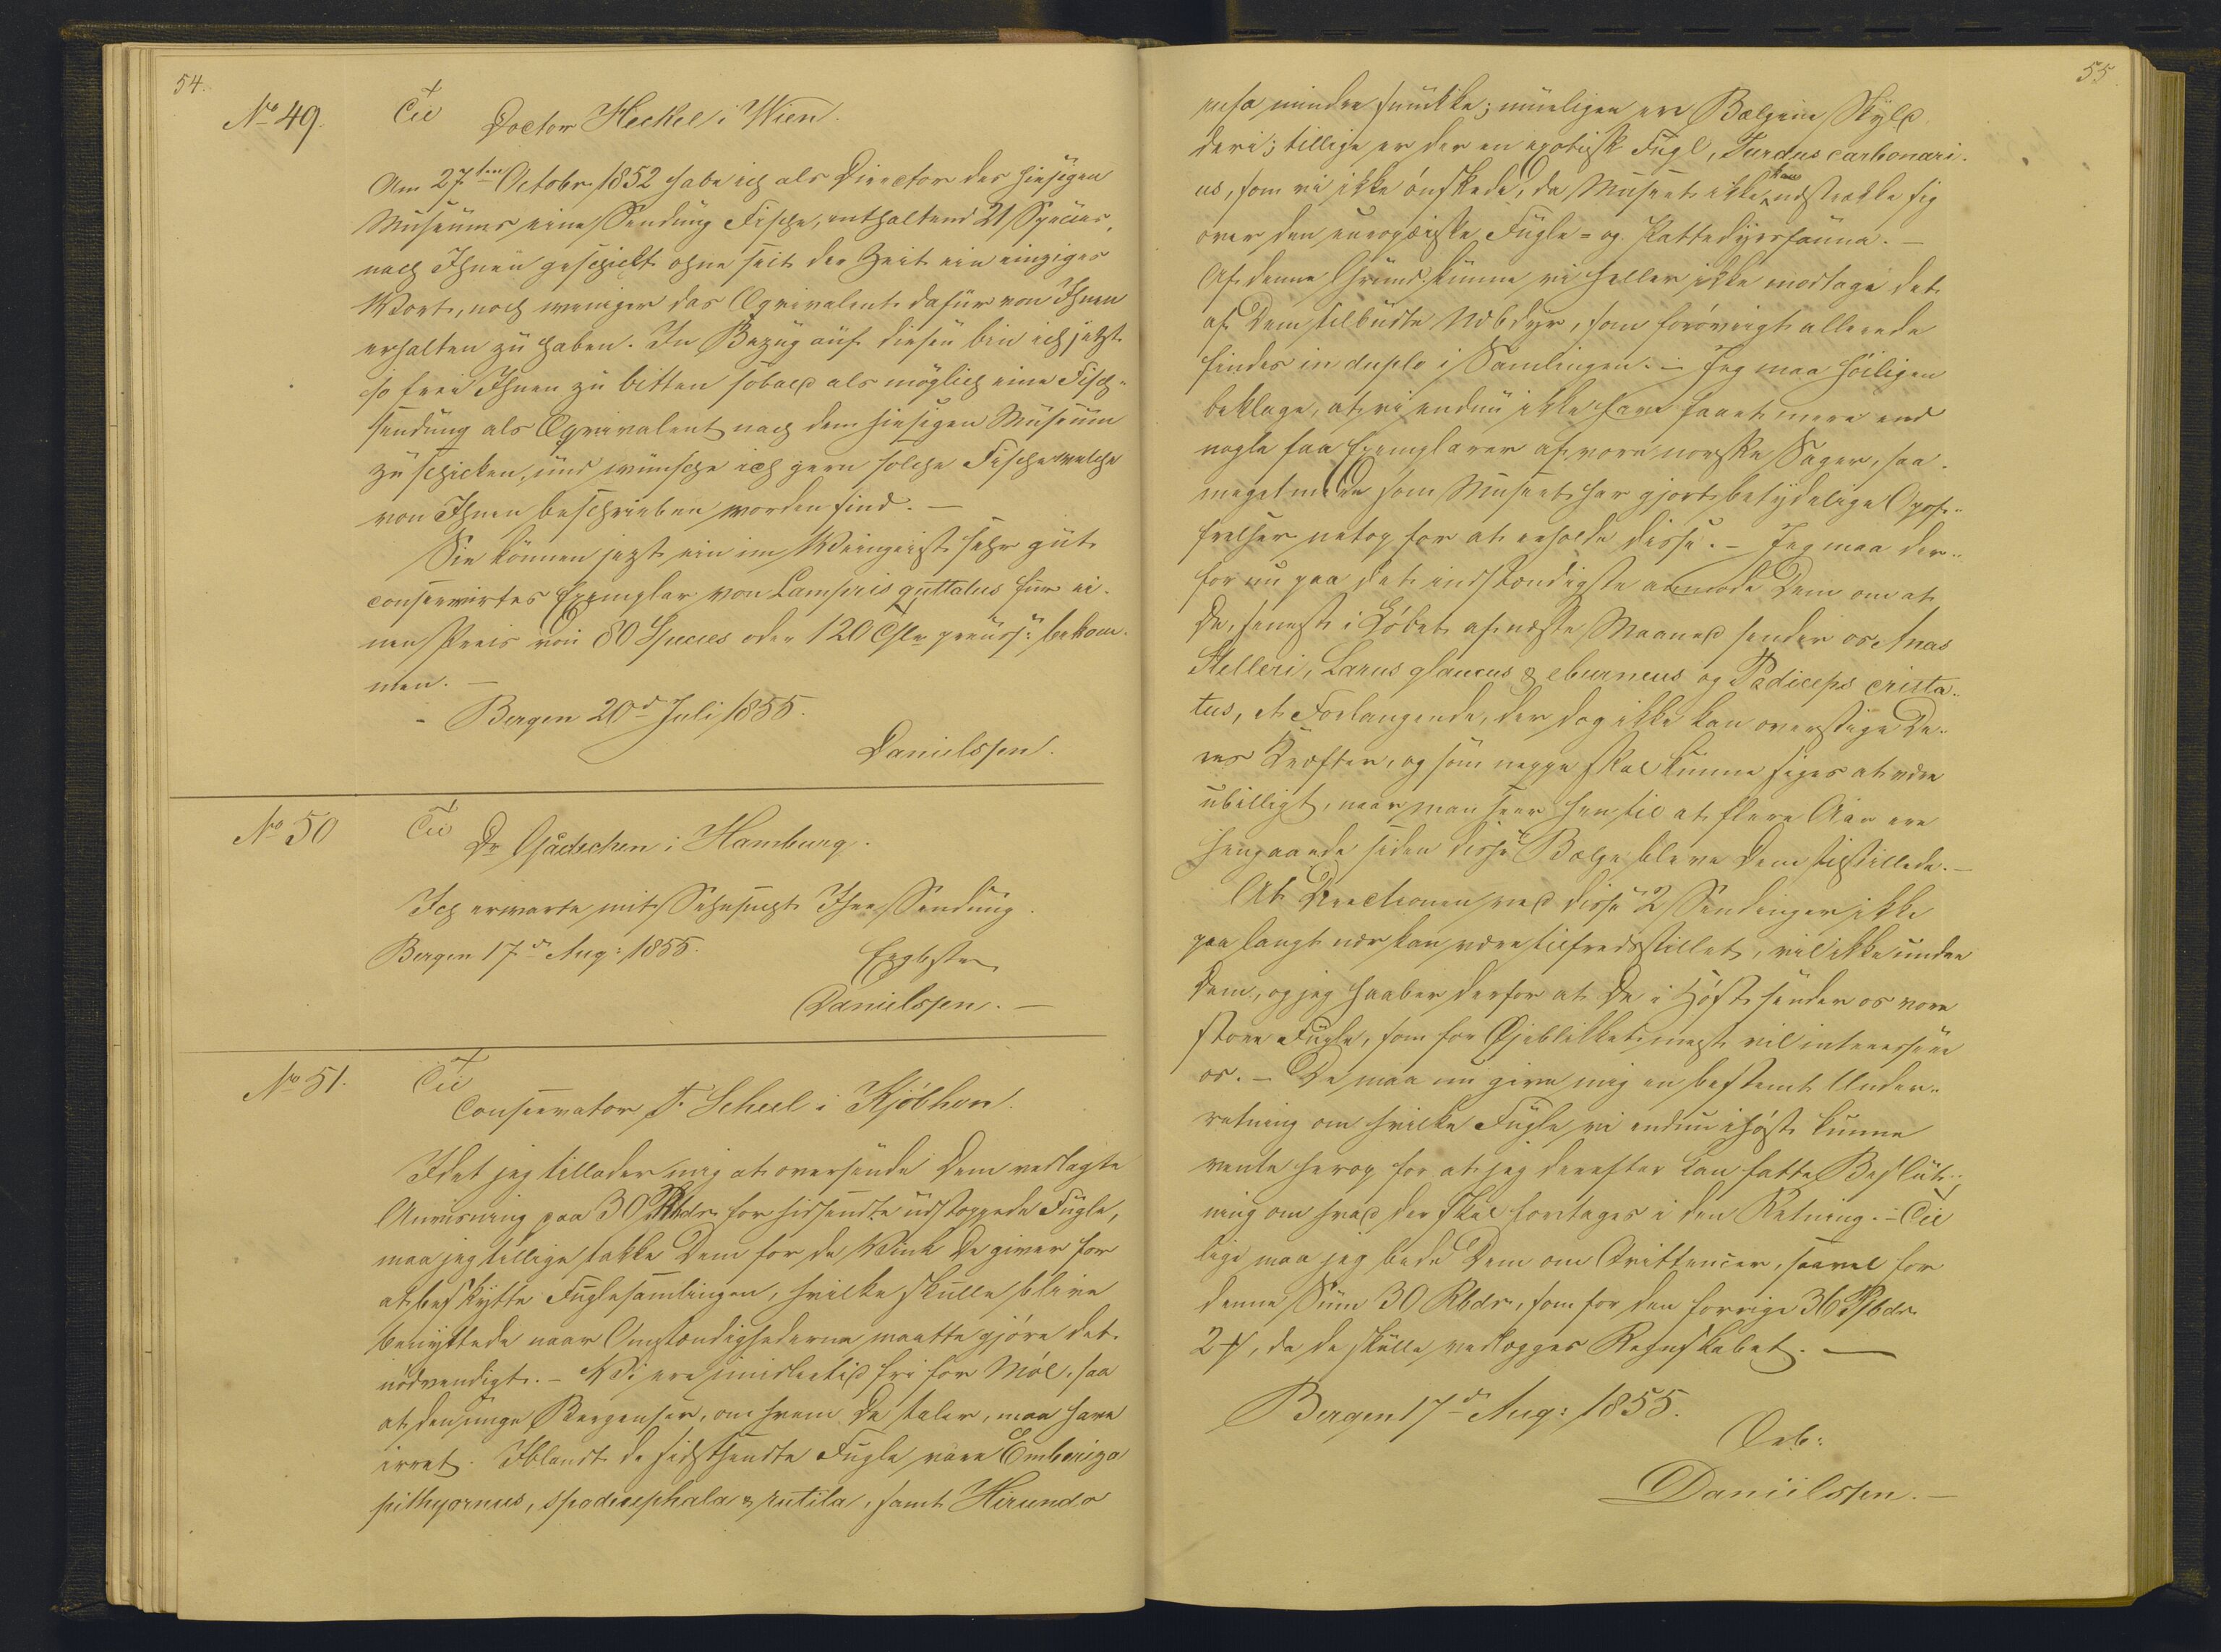 54.
No 49.
Til
Doctor Heckel i Wien.
Am 27ten Octobr. 1852 habe ich als Director des hiesigen
Museums eine Sendung Fische, enthaltend 21 Species,
nach Ihnen geschickt ohne seit der Zeit ein einziges
Wort, noch weniger das Eqvivalent dafür von Ihnen
erhalten zu haben. In Bezug auf diesen bin ich jetzt
so frei Ihnen zu bitten sobald als möglich eine Fisch-
sendung als Eqvivalent nach dem hiesigen Museum
zu schicken, und wünsche ich gern solche Fische welche
von Ihnen beschrieben worden sind. —
Sie können jezt ein im Weingeist sehr gut
conservirtes Exemplar von Lampris guttatus für ei-
nen Preis von 80 Species oder 120 Thlr preuss: bekom-
men. —
Bergen 20d Juli 1855.
Danielssen.
No 50
Til
Dr Gädechen i Hamburg.
Ich erwarte mit Sehnsucht Ihre Sendung.
Bergen 17d Aug: 1855.
Ergbstr
Danielssen. —
No 51.
Til
Conservator F. Scheel i Kjöbhvn.
Idet jeg tillader mig at oversende Dem vedlagte
Anvisning paa 30 Rbdr. for hidsendte udstoppede Fugle,
maa jeg tillige takke Dem for de Vink De giver for
at beskytte Fuglesamlingen, hvilke skulle blive
benyttede naar Omstændighederne maatte gjöre det
nödvendigt. – Vi ere imidlertid fri for Möl, saa
at den unge Bergenser, om hvem De taler, maa have
irret. Iblandt de sidstsendte Fugle vare Emberiza
pithyornus, spodocephala & rutila, samt Hirundo
55.
mindre smukke; mueligen er Bælgene Skyld
deri; tillige er der en exotisk Fugl, Turdus carbonari-
us, som vi ikke önskede, da Museet ikke kan udstrække sig
over den europæiske Fugle- og Pattedyrsfauna. —
Af denne Grund kunne vi heller ikke modtage det
af Dem tilbudte Næbdyr, som forövrigt allerede
findes in duplo i Samlingen. – Jeg maa höiligen
beklage, at vi endnu ikke have faaet mere end
nogle faa Exemplarer af vore norske Sager, saa-
meget mere som Museet har gjort betydelige Opof-
frelser netop for at erholde disse. – Jeg maa der-
for nu paa det indstændigste anmode Dem om at
De, senest i Löbet af næste Maaned sender os Anas
Stelleri, Larus glaucus & eburneus og Podiceps crista-
tus, et Forlangende, der dog ikke kan overstige De-
res Kræfter, og som neppe skal kunne siges at være
ubilligt, naar man seer hen til at flere Aar ere
hengaaede siden disse Bælge bleve Dem tilstillede. —
At Directionen med disse 2 Sendinger ikke
paa langt nær kan være tilfredsstillet, vil ikke undre
Dem, og jeg haaber derfor at De i Höst sender os vore
store Fugle, som for Öieblikket mest vil interessere
os. – De maa nu give mig en bestemt Under-
retning om hvilke Fugle vi endnu i höst kunne
vente herop for at jeg derefter kan fatte Beslut-
ning om hvad der skal foretages i den Retning. – Til
lige maa jeg bede Dem om Qvittencer, saavel for
denne Sum 30 Rbdr., som for den forrige 36 Rbdr.
2 ß, da de skulle vedlægges Regnskabet. —
Bergen 17d Aug: 1855.
Deb:
Daniilssen. —